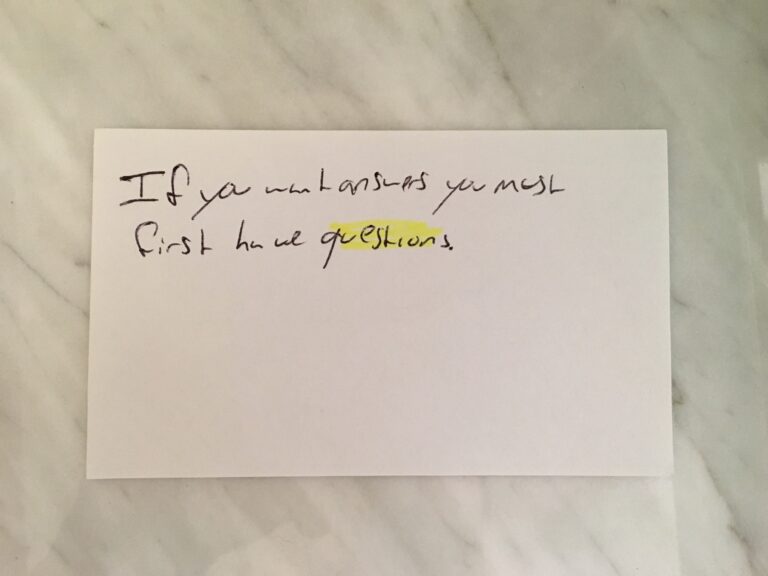 If you want answers you must
first have questions.